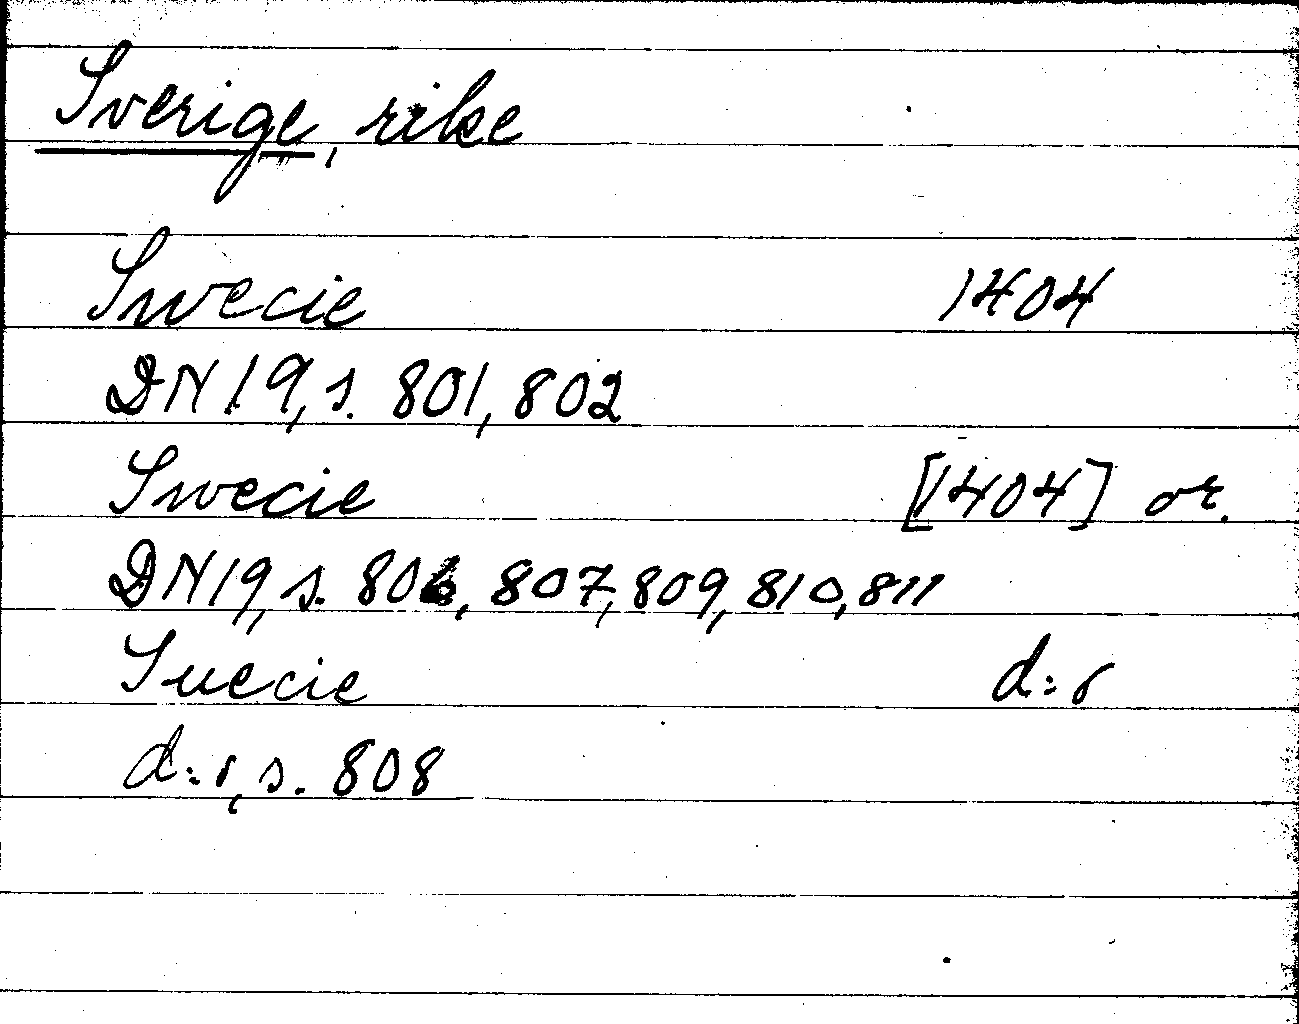 Sverige, rike
Swecie 1404
DN 19, s. 801, 802
Swecie [1404] or.
DN 19, s. 806, 807, 809, 810, 811
Suecie d:o
d:o, s. 808